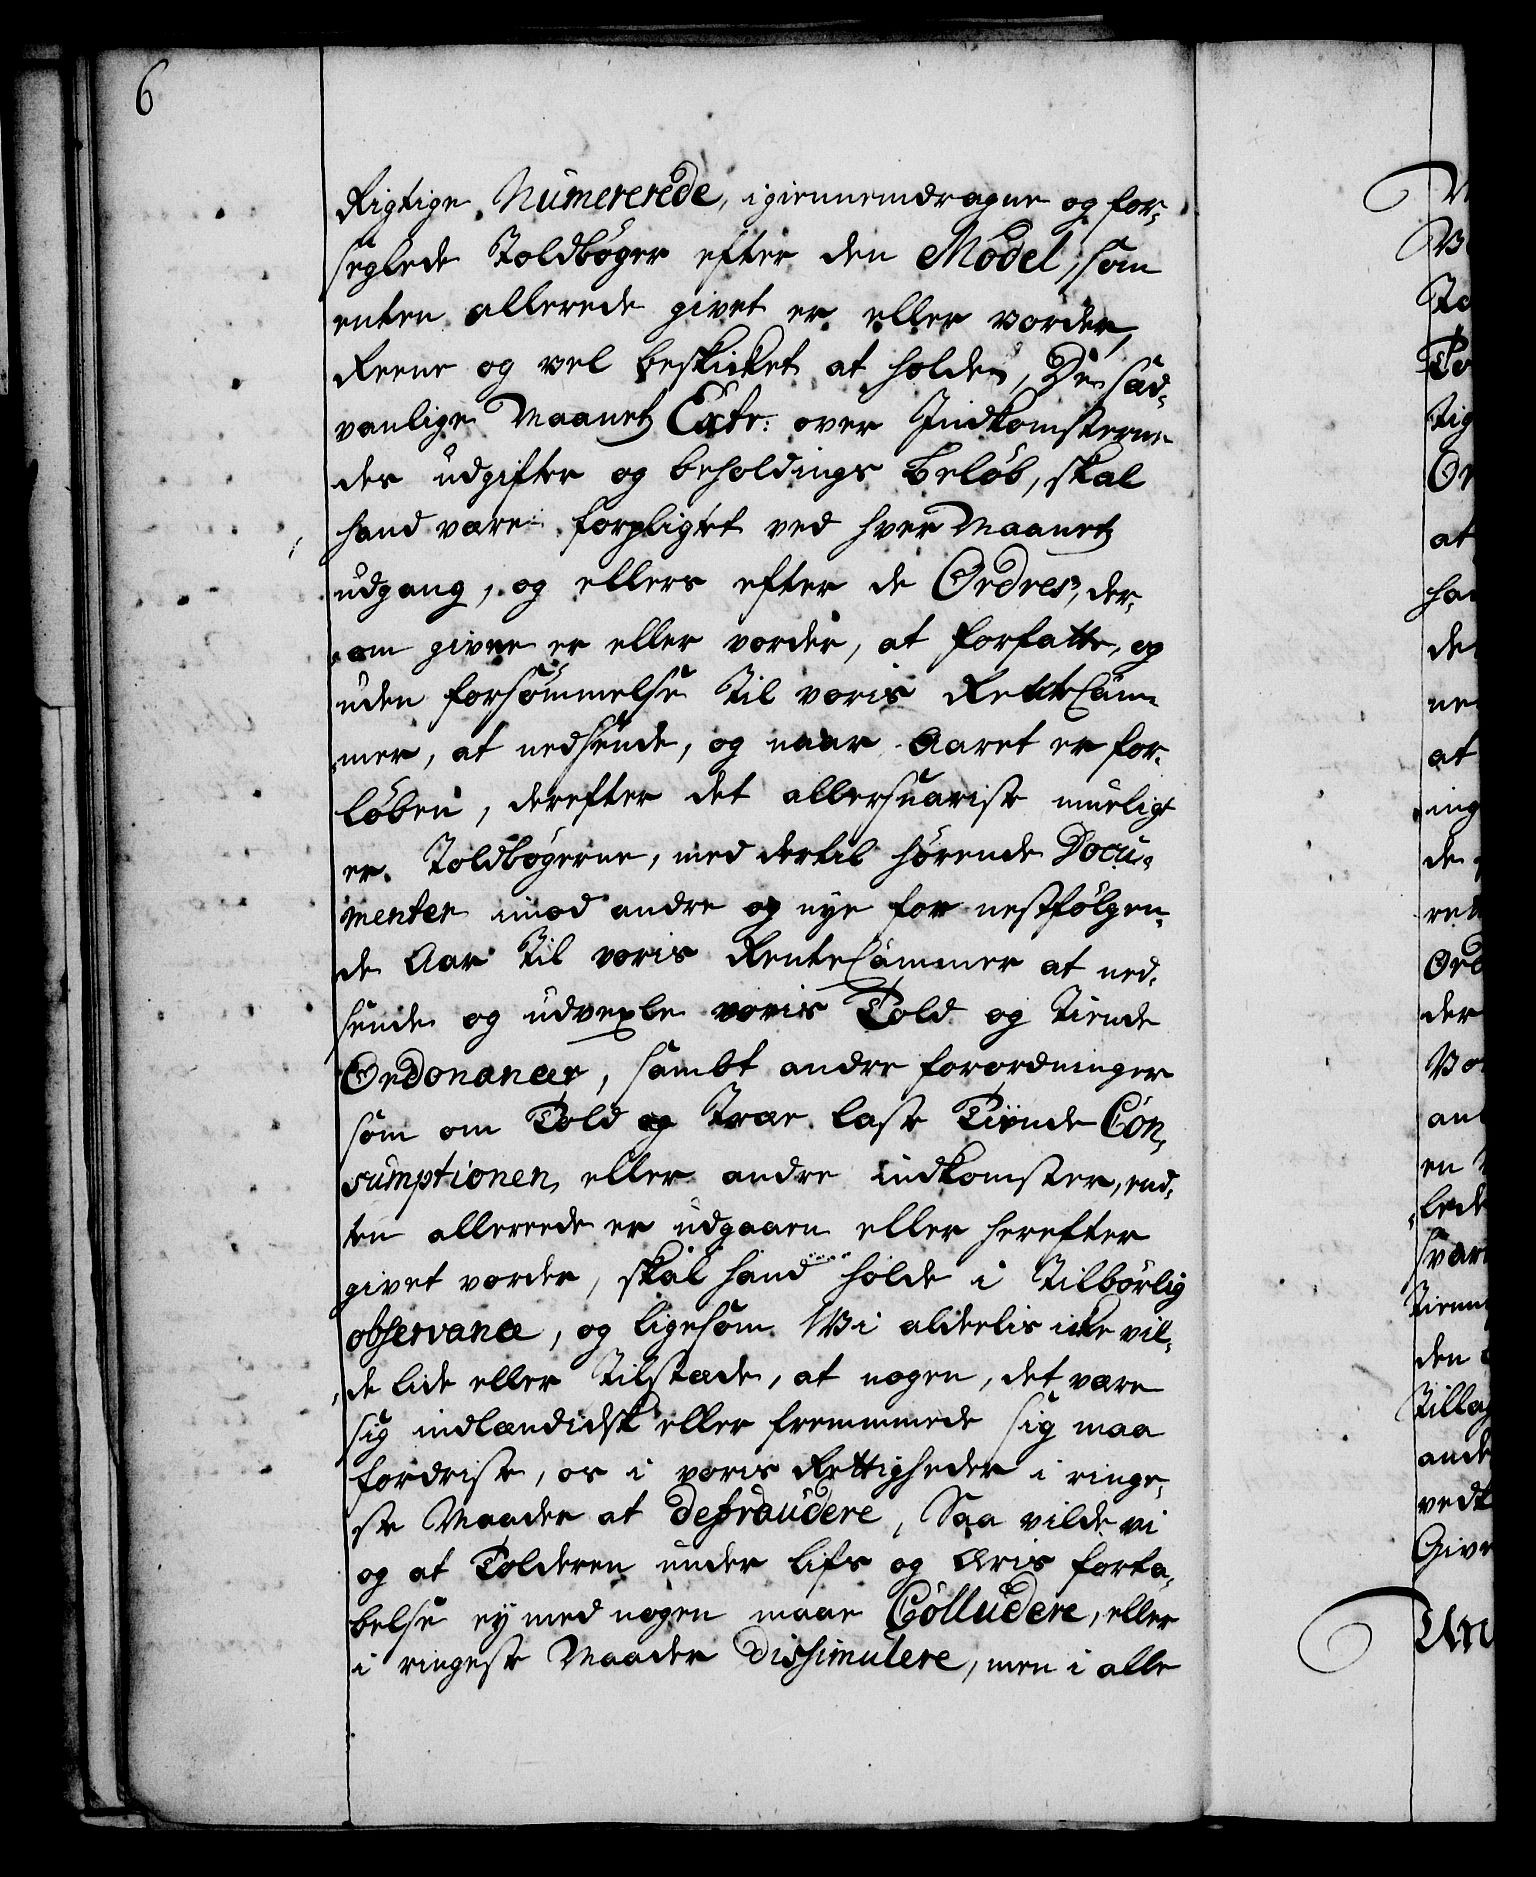 6
Rigtige Numererede, igiennemdragne og for-
seglede Toldbøger efter den Model, som
enten allerede givet er eller vorder,
Reene og vel beskicket at holde, De sæd-
vanlige Maanetz Extr: over Indkomsterne
der udgifter og beholdings beløb, skal
hand være forpligtet ved hver Maanetz
udgang, og ellers efter de Ordres, der-
om givne er eller vorder, at forfatte, og
uden forsømmelse til voris RenteCam-
mer, at nedsende, og naar Aaret er for-
løben, derefter det allersnariste mueligt
er. Toldbøgerne, med dertil hørende Docu-
menter imod andre og nye for nestfølgen-
de Aar til voris RenteCammer at ned-
sende og udvexle voris Told og Tiende
Ordonancer, sambt andre forordninger
som om Told og Træe last Tiende Con-
sumptionen eller andre indkomster, end-
ten allereede er udgaaen eller herefter
givet vorder, skal hand holde i tilbørlig
observance, og ligesom Wi alderlis icke vil-
de lide eller tilstæde, at nogen, det være
sig indlændidsk eller fremmmede sig maa
fordriste, os i voris Rettigheder i ringe-
ste Maader at defraudere, Saa vilde vi
og at Tolderen under lifs og Æris forta-
belse ey med nogen maae Colludere, eller
i ringeste Maader dissimulere, men i alle